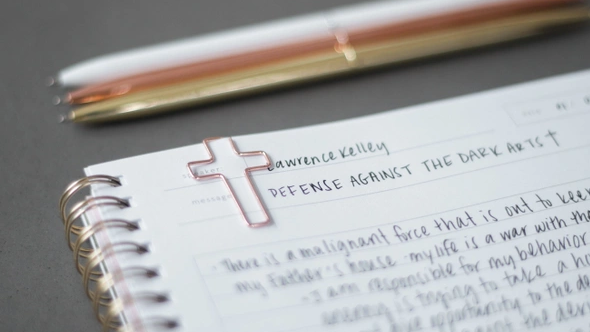 Lawrence Kelley
message
DEFENSE AGAINST THE DARK ARTS†
- There is a malignant force that is out to keep
my Father's house. my life is a war with tha
- I am responsible for my behavior
enemy is trying to take a ho
opportunity to the de